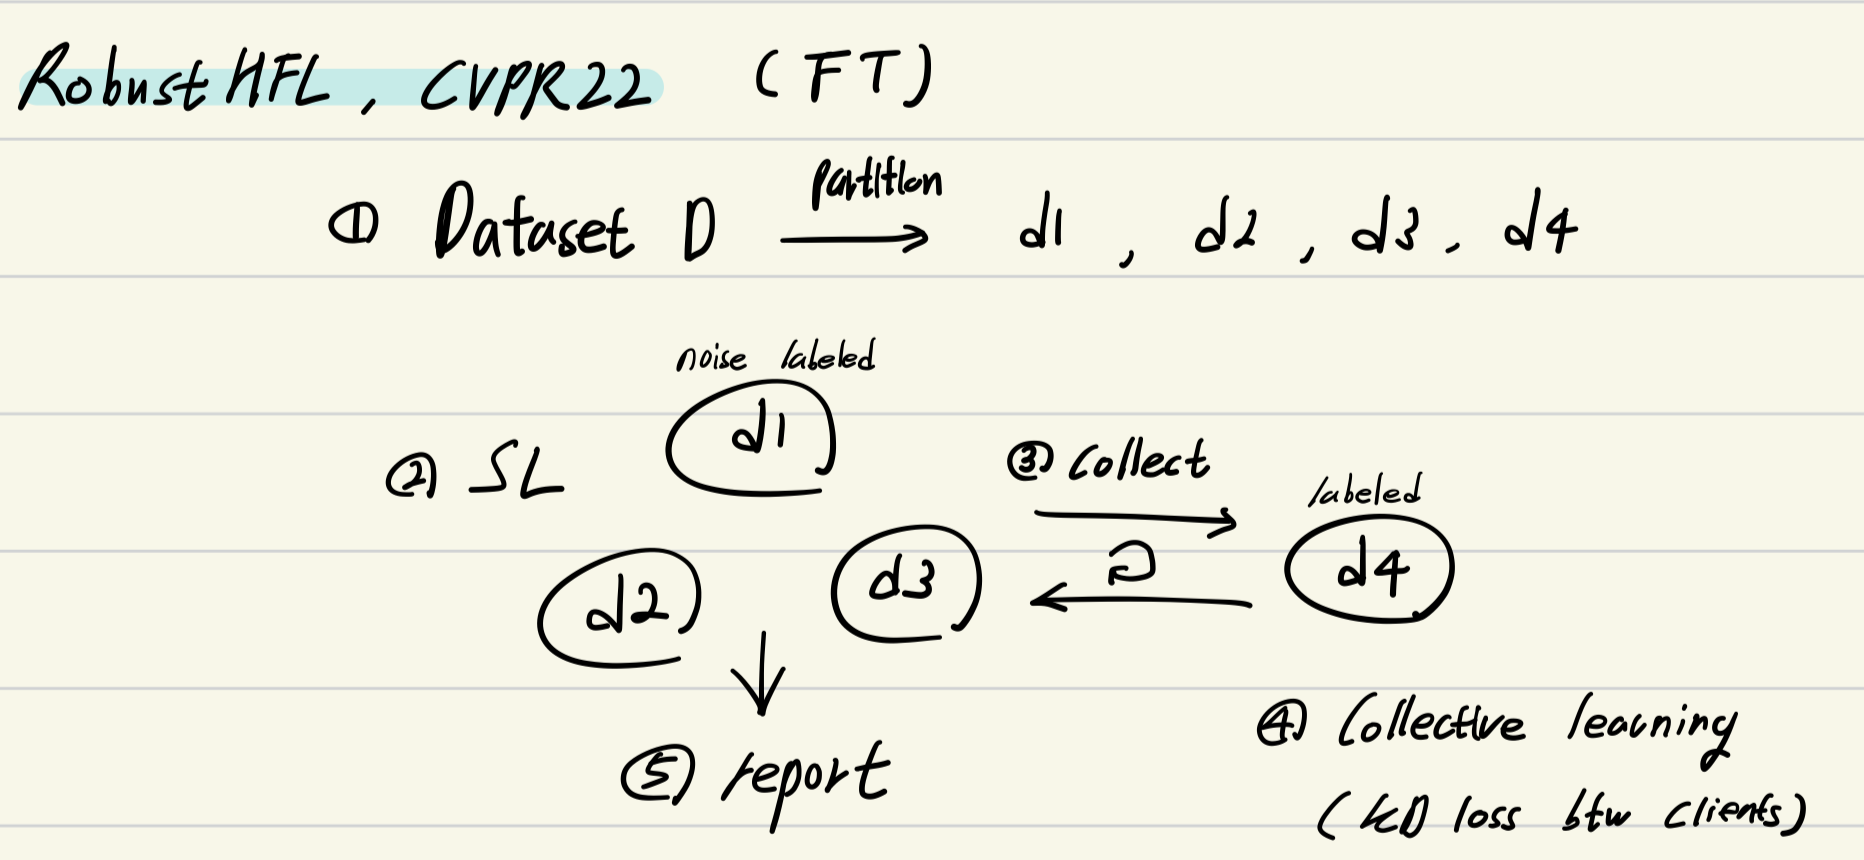 Robust HFL, CVPR22 (FT)
① Dataset D partition → d1, d2, d3, d4
noise labeled
d1
② SL
③ collect
labeled
d2
d3
d4
④ Collective learning
⑤ report
(KD loss btw clients)